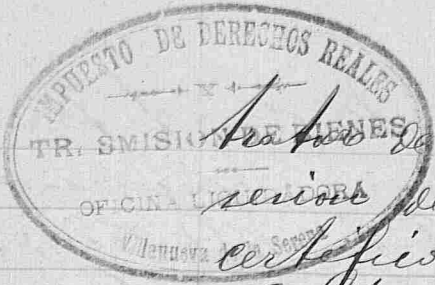 IMPUESTO DE DERECHOS REALES
Y
TR. SMISION DE BIENES
tratos de
OFICINA LIQUIDADORA
de
Villenueva de la Serena
certifico